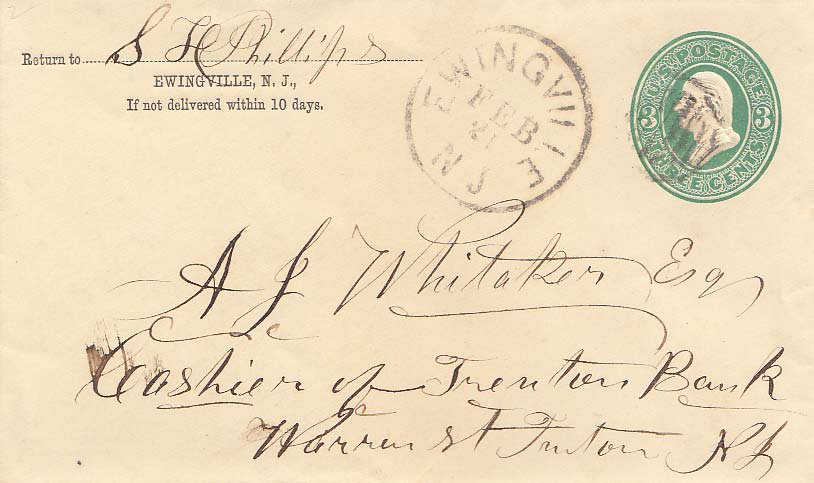 Return to S H Phillips
EWINGVILLE, N. J.,
If not delivered within 10 days.
EWINGVILLE
FEB
21
N J
U.S. POSTAGE
3 3
THREE CENTS
A J Whitaker Esq
Cashier of Trenton Bank
Warren St Trenton NJ